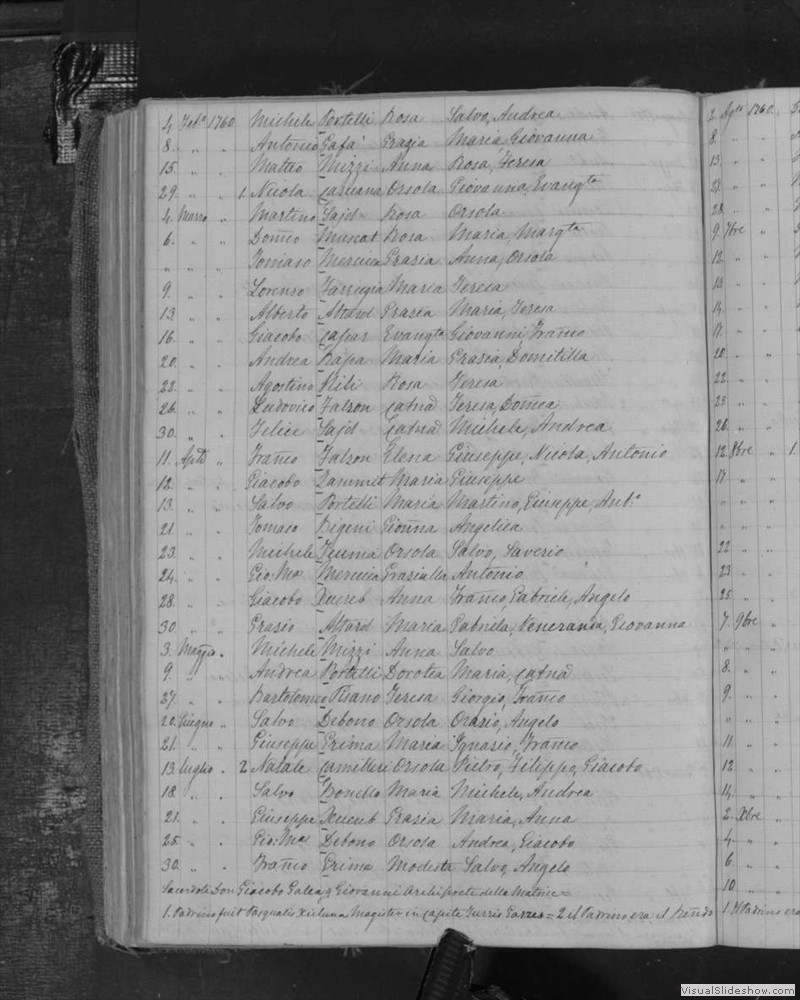 4. Feb.º 1760 Michele Portelli Rosa Salvo, Andrea
8. " " Antonio Gafa' Grazia Maria, Giovanna
15. " " Matteo Mizzi Anna Rosa, Teresa
29. " " 1. Nicola Caruana Orsola Giovanna, Evangta
4. Marzo " Martino Sajd Rosa Orsola
6. " " Domco Muscat Rosa Maria, Margta
" " " Tomaso Mercieca Grazia Anna, Orsola
9. " " Lorenzo Farrugia Maria Teresa
13 " " Alberto Attard Grazia Maria, Teresa
16. " " Giacobo Caspar Evangta Giovanni, Franco
20. " " Andrea Rapa Maria Grazia, Domitilla
22. " " Agostino Rosa Teresa
26. " " Ludovico Falzon Catna Teresa, Domca
30. " " Felice Sajd Catna Michele, Andrea
11. Aple " Franco Falzon Elena Giuseppe, Nicola, Antonio
12. " " Giacobo Zammit Maria Giuseppe
13. " " Salvo Portelli Maria Martino, Giuseppe, Ant.º
21. " " Tomaso Bigeni Gionna Angelica
23. " " Michele Xuma Orsola Salvo, Saverio
24. " " Gio: Ma Mercieca Graziulla Antonio
28. " " Giacobo Xuereb Anna Franco, Gabriele, Angelo
30 " " Grazio Attard Maria Gabriela, Veneranda, Giovanna
3. Maggio " Michele Mizzi Anna Salvo
9. " " Andrea Portelli Dorotea Maria, Catna
27. " " Bartolomeo Pisano Teresa Giorgio, Franco
20. Giugno " Salvo Debono Orsola Orazio, Angelo
21. " " Giuseppe Grima Maria Ignazio, Franco
13 luglio " 2 Natale Camilleri Orsola Pietro, Filippo, Giacobo
18. " " Salvo Bonello Maria Michele, Andrea
21. " " Giuseppe Xuereb Grazia Maria, Anna
25. " " Gio: Ma Debono Orsola Andrea, Giacobo
30. " " Franco Grima Modesta Salvo, Angelo
Sacerdote Don Giacobo Galea q Giovanni Archiprete della Matrice =
1. Padrino fuit Pasqualis Xicluna Magister in capite Turris Garzes = 2 il Padrino era il Rendo
2. Agto 1760.
8. " "
13. " "
21. " "
28. " "
9. 7bre "
12. " "
13. " "
14. " "
17. " "
20. " "
22. " "
23. " "
26. " "
12. 8bre " 1.
17 " "
" " "
" " "
22 " "
23 " "
25 " "
7. 9bre "
" " "
8. " "
9. " "
" " "
11. " "
12 " "
14. " "
2. Xbre "
4. " "
6. " "
10. " "
1. Il Padrino era
VisualSlideshow.com